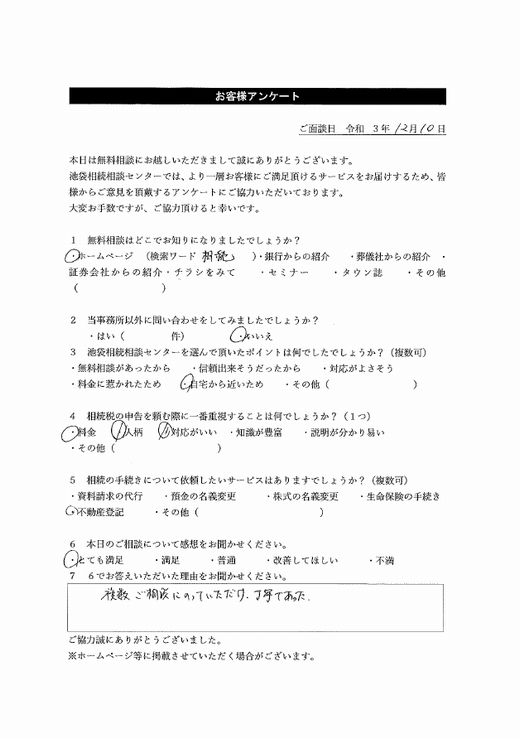 お客様アンケート
ご面談日 令和 3年12月10日
本日は無料相談にお越しいただきまして誠にありがとうございます。
池袋相続相談センターでは、より一層お客様にご満足頂けるサービスをお届けするため、皆
様からご意見を頂戴するアンケートにご協力いただいております。
大変お手数ですが、ご協力頂けると幸いです。
1 無料相談はどこでお知りになりましたでしょうか?
・ホームページ (検索ワード 相続 )・銀行からの紹介 ・葬儀社からの紹介 ・
証券会社からの紹介・チラシをみて ・セミナー ・タウン誌 ・その他
( )
2 当事務所以外に問い合わせをしてみましたでしょうか?
・はい( 件) ・いいえ
3 池袋相続相談センターを選んで頂いたポイントは何でしたでしょうか?(複数可)
・無料相談があったから ・信頼出来そうだったから ・対応がよさそう
・料金に惹かれたため ・自宅から近いため ・その他( )
4 相続税の申告を頼む際に一番重視することは何でしょうか?(1つ)
・料金 ・人柄 ・対応がいい ・知識が豊富 ・説明が分かり易い
・その他( )
5 相続の手続きについて依頼したいサービスはありますでしょうか?(複数可)
・資料請求の代行 ・預金の名義変更 ・株式の名義変更 ・生命保険の手続き
・不動産登記 ・その他( )
6 本日のご相談について感想をお聞かせください。
・とても満足 ・満足 ・普通 ・改善してほしい ・不満
7 6でお答えいただいた理由をお聞かせください。
複数ご相談にのっていただけ、丁寧であった。
ご協力誠にありがとうございました。
※ホームページ等に掲載させていただく場合がございます。